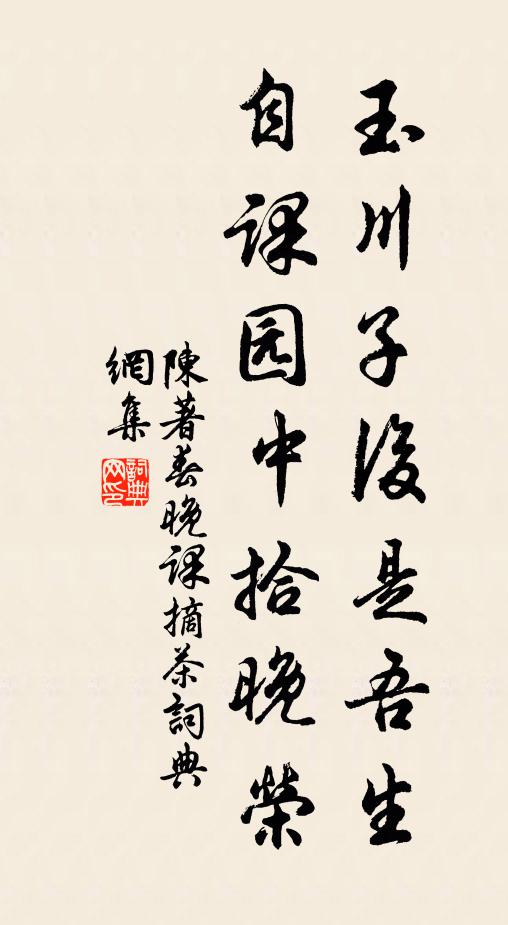 玉川子後是吾生
自課园中拾晚榮
陳著春晚課摘茶詞典
網集
詞典
网印